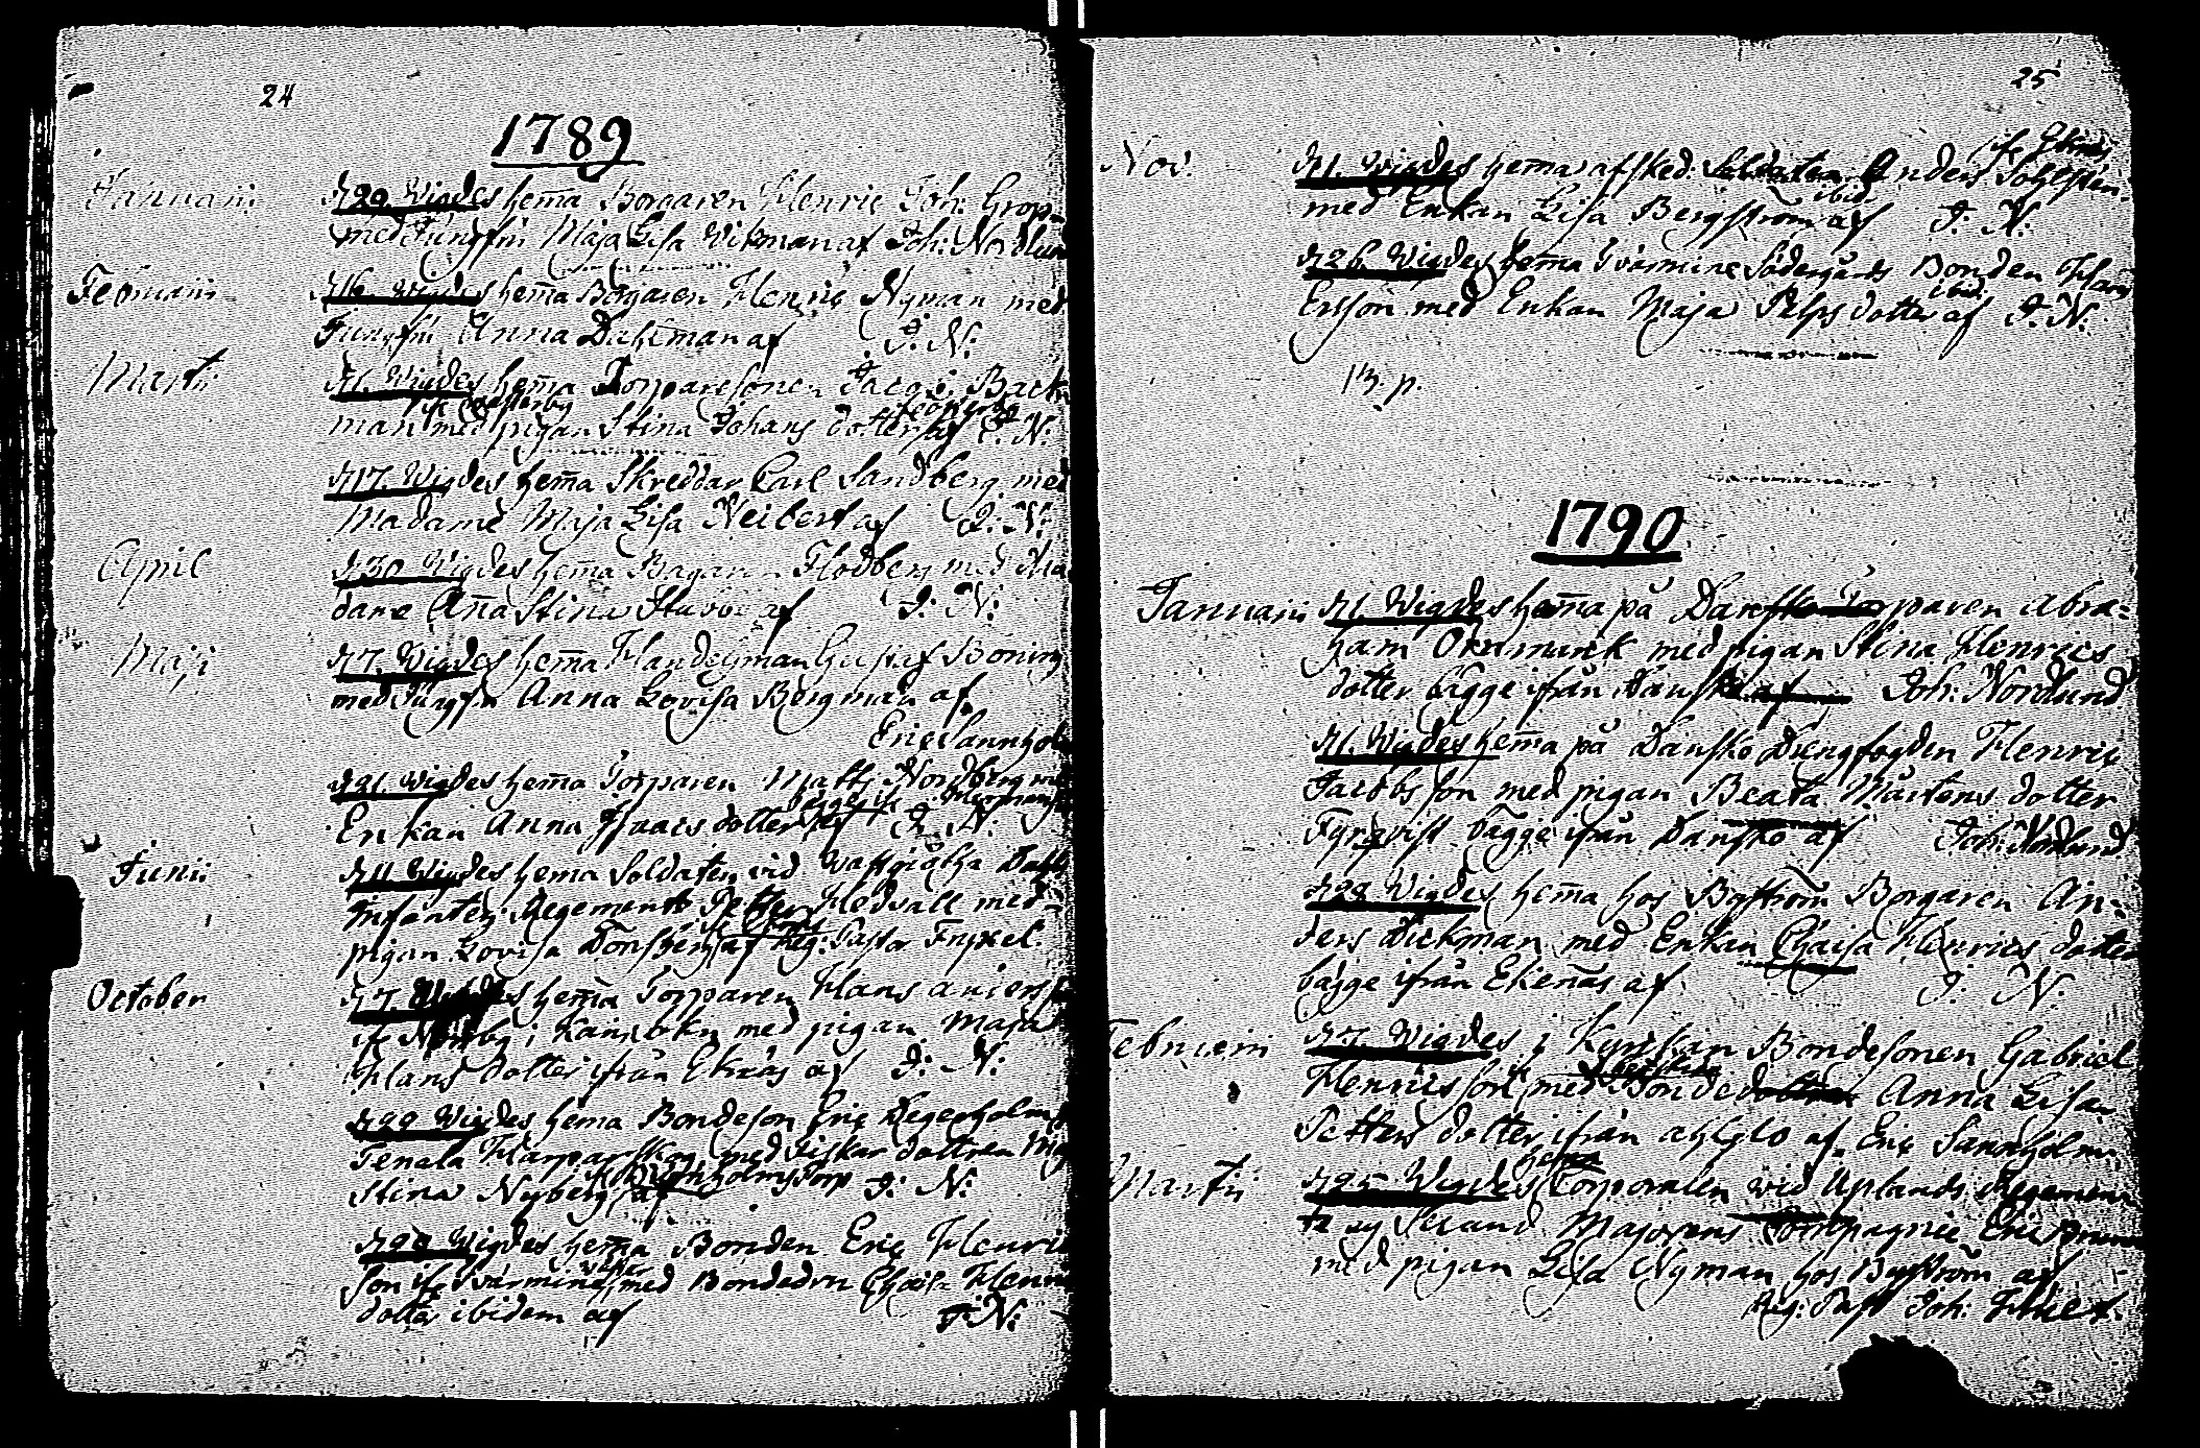 24
1789
Januarii d. 29. Wigdes hem̄a Borgaren Henric Joh: Grop
med Jungfru Maja Lisa Wikman af Joh: Nordlund
Februarii d. 16. Wigdes hem̄a Borgaren Henric Nyman med
Jungfru Anna Dahlman af J: N:
Martii d. 1. Wigdes hem̄a Torparesonen Jacob Back
ifr Westerby
man med pigan Stina Johans dotter af J: N:
d. 17. Wigdes hem̄a Skreddar Carl Sandberg med
Madame Maja Lisa Neibert af J: N:
April d. 30 Wigdes hem̄a Bagaren Flodberg med Ma
dame An̄a Stina af J: N:
Maji d. 7. Wigdes hem̄a Handelsman Gustaf Boning
med Jungfr Anna Lovisa Bergman af
Eric Sannholm
d. 21. Wigdes hem̄a Torparen Matts Nordberg med
bägge ifr
Enkan Anna Isaacs dotter af J: N:
Junii d. 11. Wigdes hema Soldaten vid Wästgiötha
Infanter: Regemente Petter Hedvall med
pigan Lovisa af Reg: Pastor Fryxel.
October d. 7. Wigdes hem̄a Torparen Hans anders
ifr i med pigan Maja
Hans dotter ifrån Eknäs af J: N:
d. 22 Wigdes hema Bondeson Eric Degerholm
Tenala Harparskog med Fiskar dottren
Stina Nyberg af J: N:
d. 28 Wigdes hem̄a Bonden Eric Henric
son ifr Svärmine med Bondedotr Chaisa Henri
dotter ibidem af J: N:
25
ifr Eknäs
Nov: d. 1. Wigdes hem̄a afsked: Soldaten Anders
ibid.
med Enkan Lisa Bergström af J: N:
d. 26. Wigdes hem̄a Svärmine Södergårds Bonden Hans
ibid.
Ersson med Enkan Maja dotter af J: N:
13. p.
1790
Januarii d. 1. Wigdes hem̄a på Dansko Torparen Abra=
ham Ornmurck med pigan Stina Henrics
dotter bägge ifrån Dansko af Joh: Nordlund
d. 1. Wigdes hem̄a på Dansko Drengfogden Henric
Jacobsson med pigan Beata Mårtens dotter
Fyrqvist bägge ifrån Dansko af Joh: Nordlund
d. 28 Wigdes hem̄a hos Byström Borgaren An=
ders Dickman med Enkan Chaisa Henrics dotter
bägge ifrån Eken̄äs af J: N:
Februarii d. 7. Wigdes i Kyrkan Bondesonen Gabriel
Henricsson ifr med Bondedottren Anna Lisa
Petters dotter ifrån af Eric Sannholm
hema
Martii d. 25 Wigdes Corporalen wid Uplands Regemen
te ag Second Majorens Compagnie Eric
med pigan Lisa Nyman hos Byström af
Reg: Past Joh: